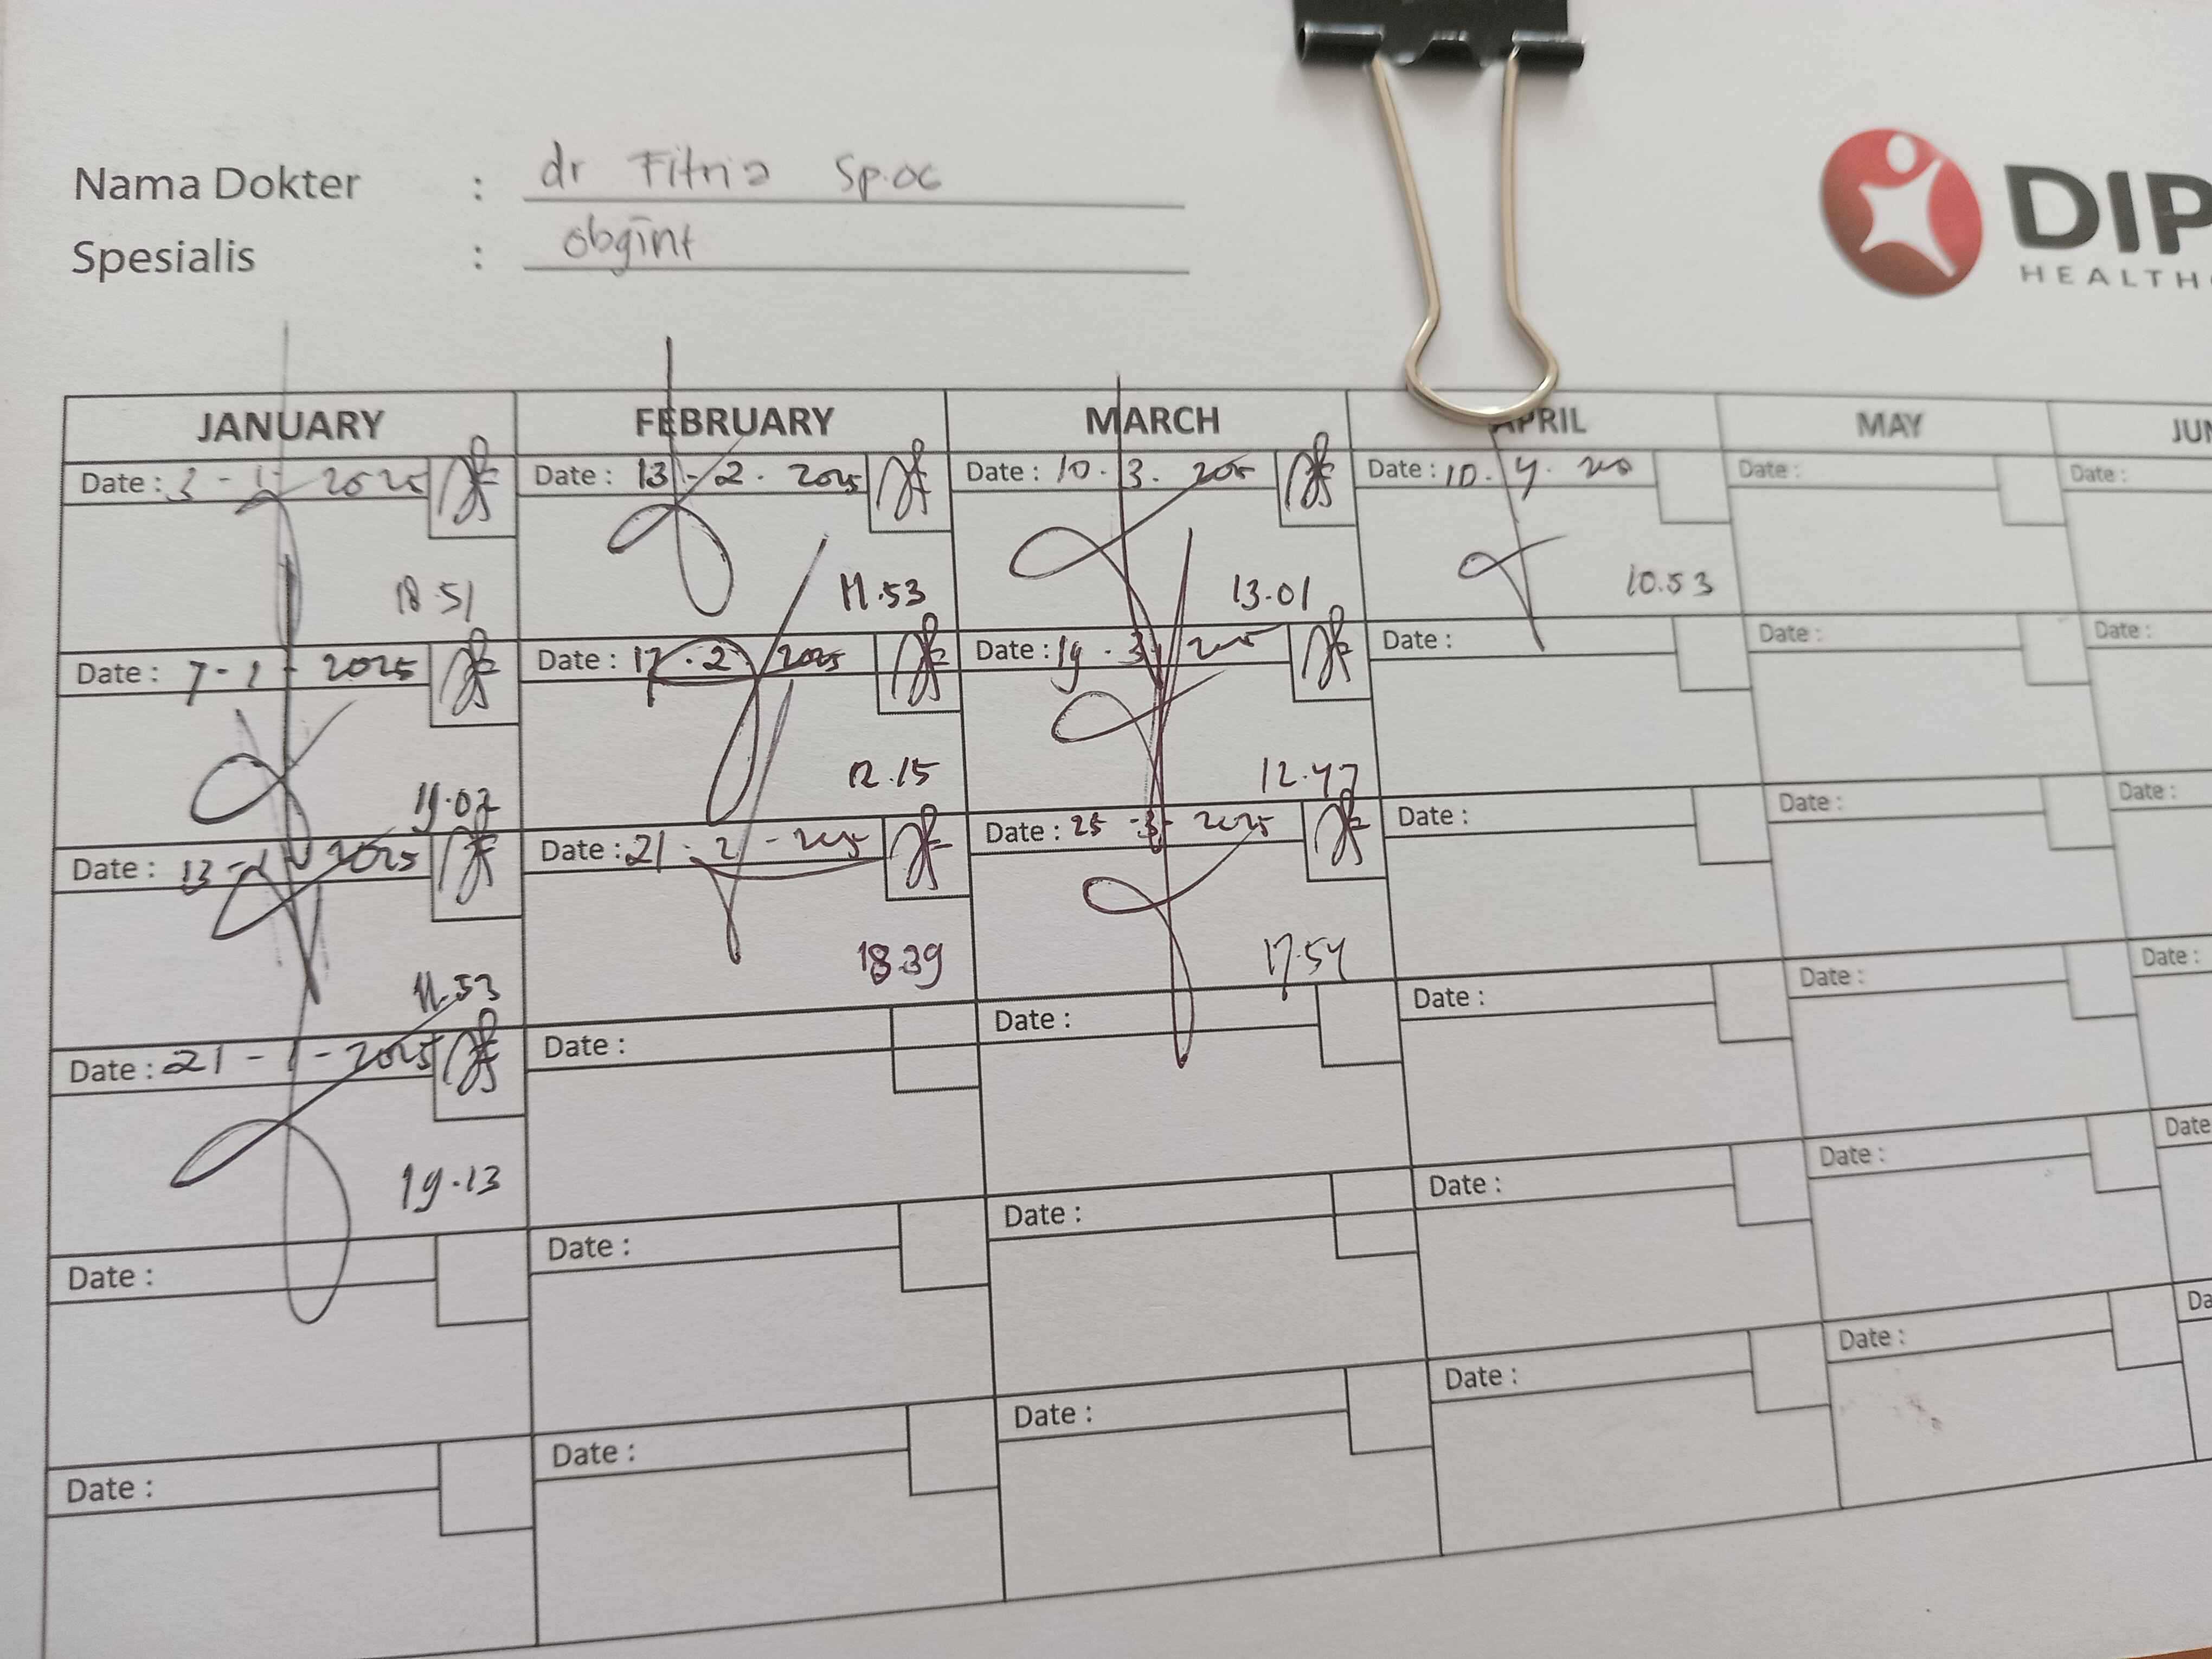 Nama Dokter : dr Fitria Sp.OG
Spesialis : obgint
DIP
HEALTH
JANUARY FEBRUARY MARCH APRIL MAY JUN
Date : 3 - 1 - 2025 Date : 13 - 2 . 2025 Date : 10 . 3 . 2025 Date : 10 . 4 . Date : Date :
18.51 11.53 13.01 10.53
Date : 7 - 1 - 2025 Date : 17 . 2 2025 Date : 19 . 3 Date : Date : Date :
19.07 12.15 12.47
Date : 13 - 1 - 2025 Date : 21 - 2 - 2025 Date : 25 - 3 - 2025 Date : Date : Date :
11.53 18.39 17.54
Date : 21 - 1 - 2025 Date : Date : Date : Date : Date :
19.13
Date : Date : Date : Date : Date : Date
Date : Date : Date : Date : Date : Da